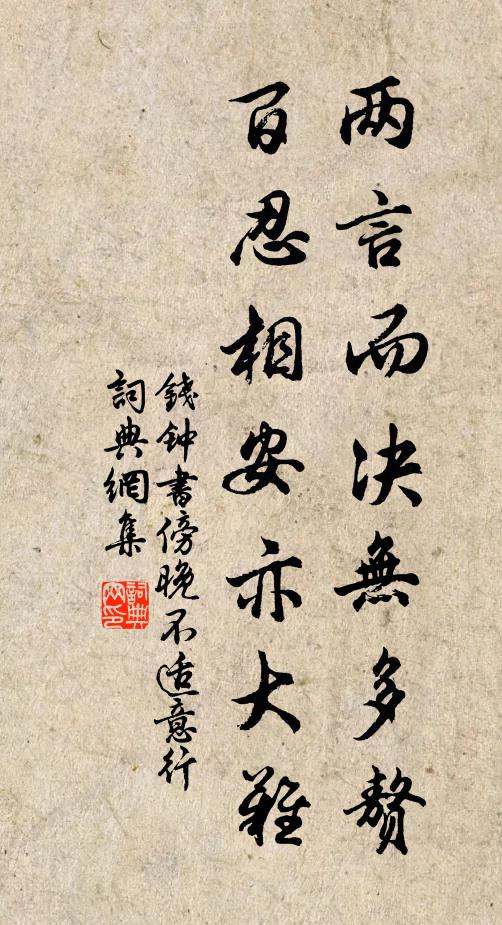 两言而决無多赘
百忍相安亦大難
錢钟書傍晚不适意行
詞典網集
詞典網印